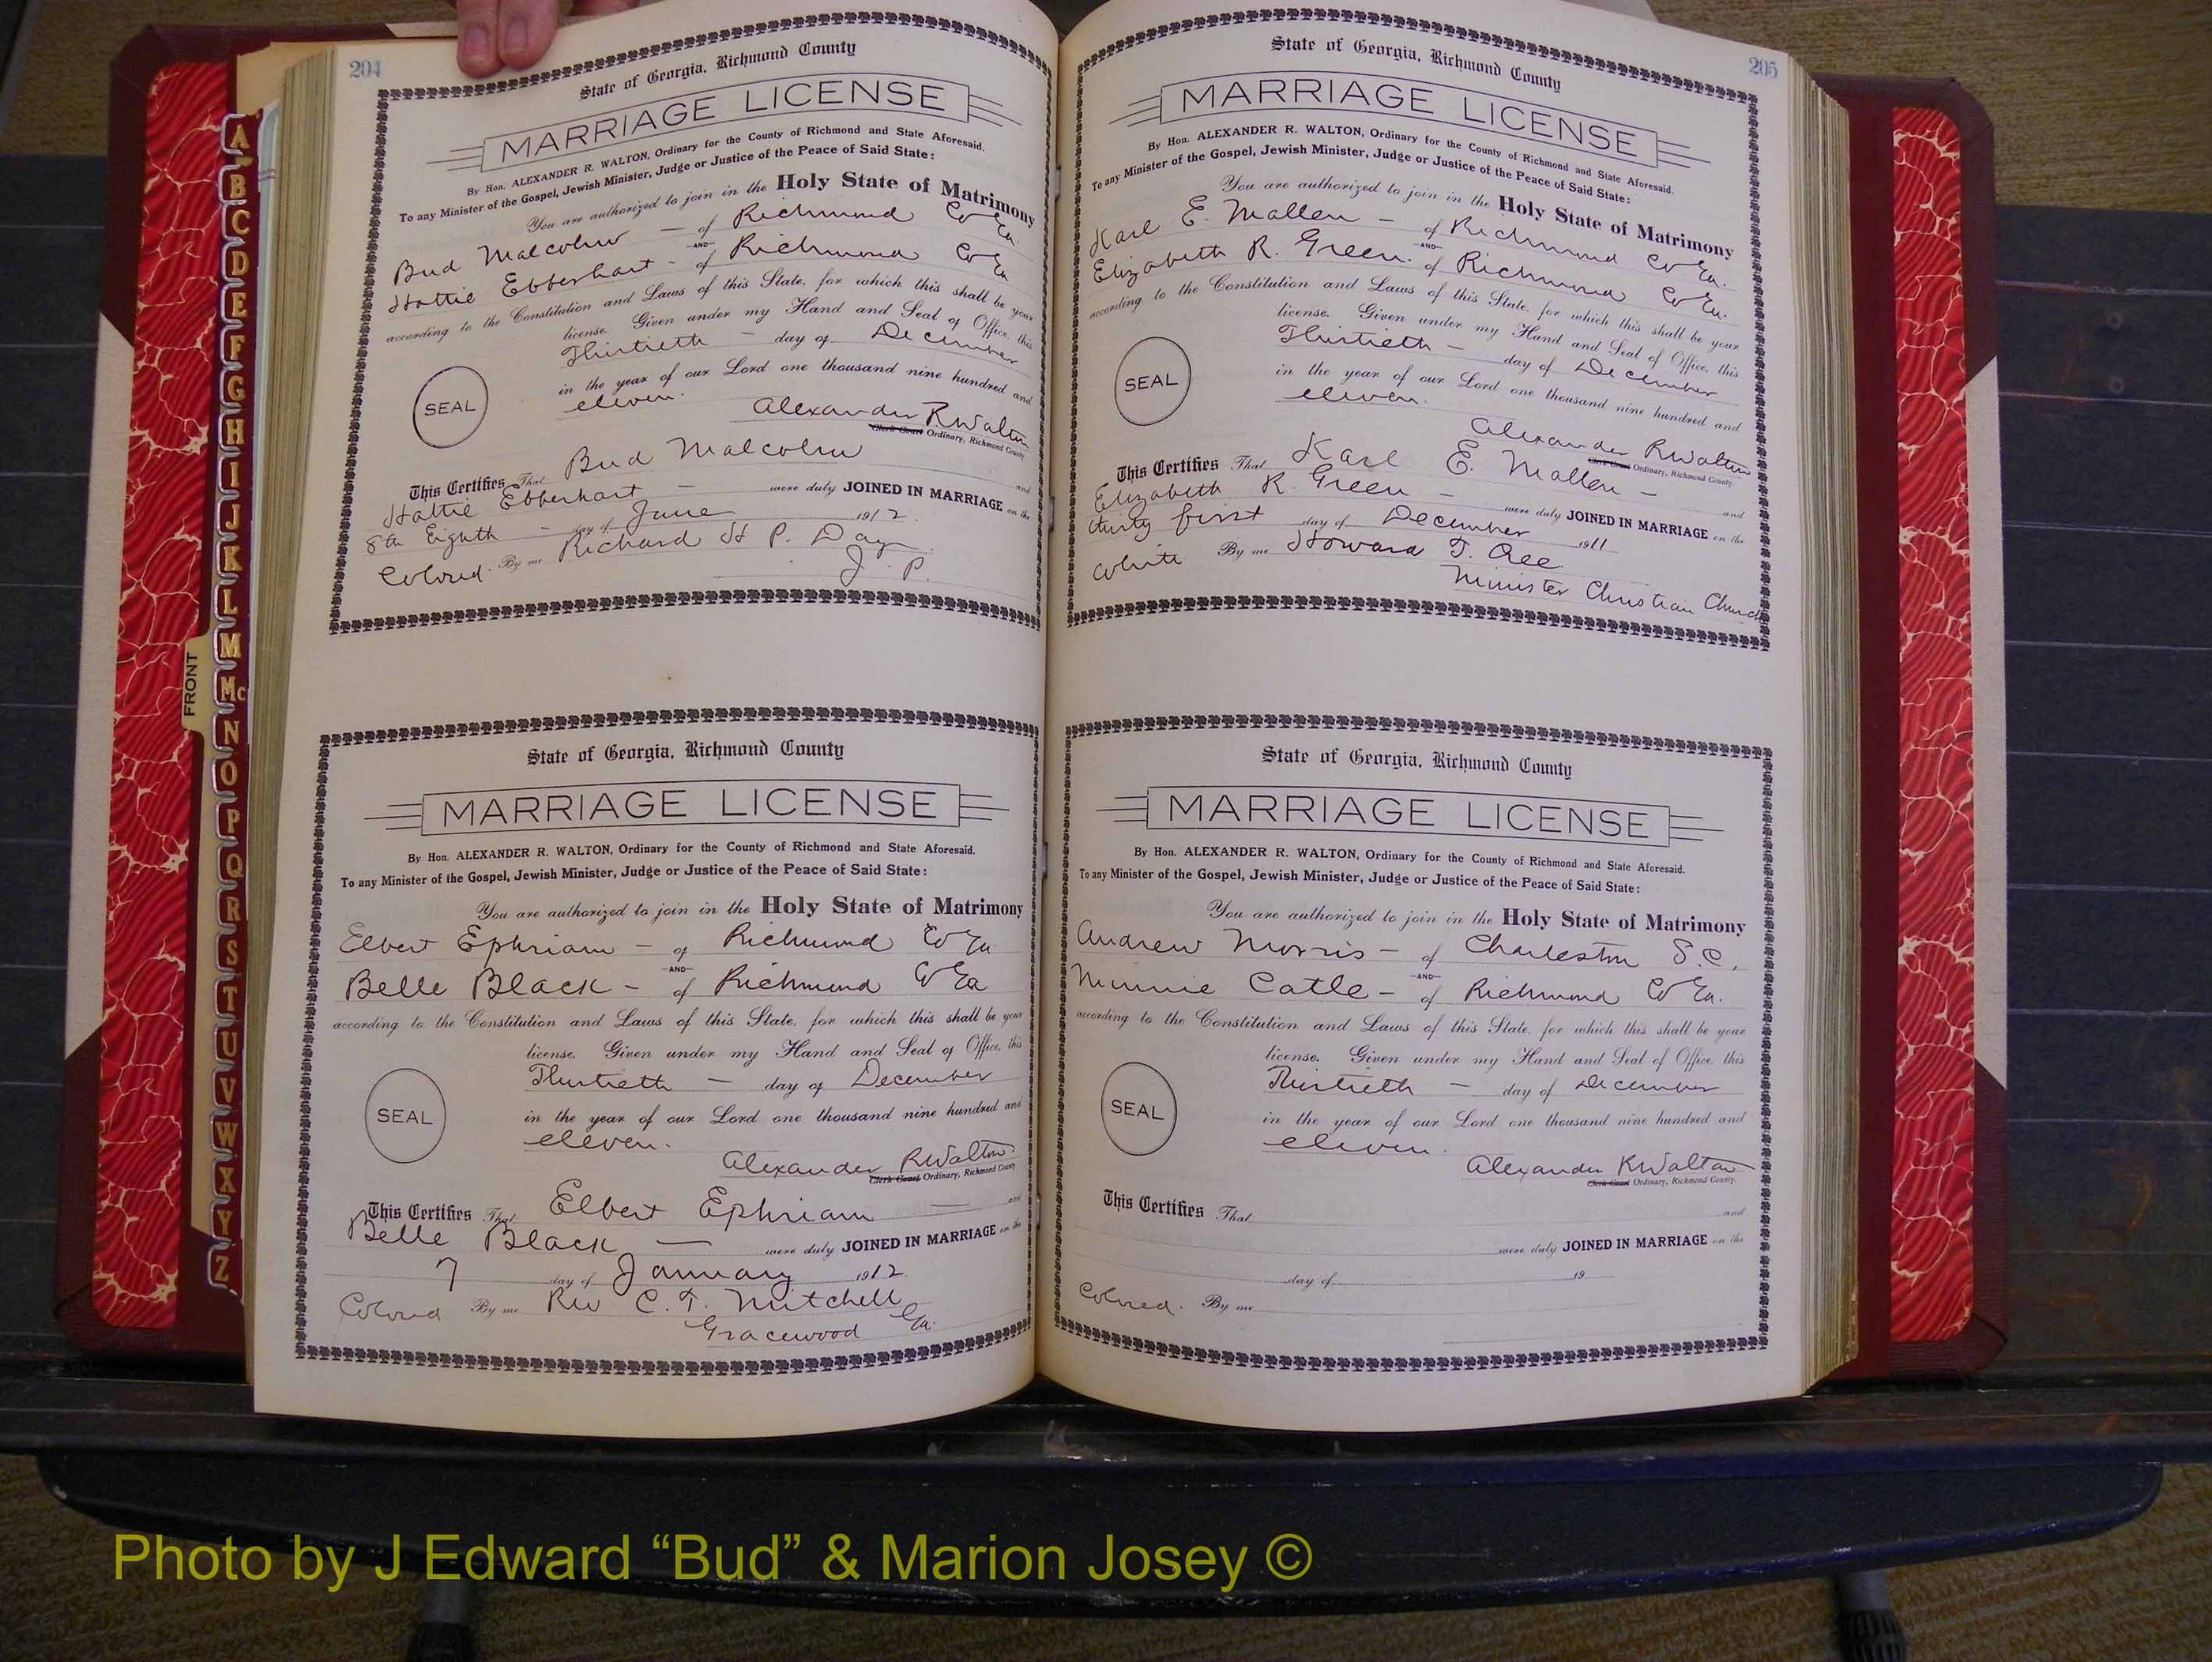 204
State of Georgia, Richmond County
MARRIAGE LICENSE
By Hon. ALEXANDER R. WALTON, Ordinary for the County of Richmond and State Aforesaid.
To any Minister of the Gospel, Jewish Minister, Judge or Justice of the Peace of Said State:
You are authorized to join in the Holy State of Matrimony
Bud Malcolm — of Richmond Co Ga.
AND
Hattie Ebberhart - of Richmond Co Ga
according to the Constitution and Laws of this State, for which this shall be your
license. Given under my Hand and Seal of Office, this
Thirtieth — day of December
in the year of our Lord one thousand nine hundred and
eleven.
SEAL
Alexander R Walton
Clerk Court Ordinary, Richmond County
This Certifies That Bud Malcolm and
Hattie Ebberhart — were duly JOINED IN MARRIAGE on the
8th Eighth — day of June 1912.
Colored. By me Richard H P. Day
J. P.
State of Georgia, Richmond County
MARRIAGE LICENSE
By Hon. ALEXANDER R. WALTON, Ordinary for the County of Richmond and State Aforesaid.
To any Minister of the Gospel, Jewish Minister, Judge or Justice of the Peace of Said State:
You are authorized to join in the Holy State of Matrimony
Elbert Ephriam — of Richmond Co Ga
AND
Belle Black - of Richmond Co Ga
according to the Constitution and Laws of this State, for which this shall be your
license. Given under my Hand and Seal of Office, this
Thirtieth — day of December
in the year of our Lord one thousand nine hundred and
eleven.
SEAL
Alexander R Walton
Clerk Court Ordinary, Richmond County
This Certifies That Elbert Ephriam — and
Belle Black — were duly JOINED IN MARRIAGE on the
7 day of January 1912.
Colored By me Rev C. T. Mitchell
Gracewood Ga.
205
State of Georgia, Richmond County
MARRIAGE LICENSE
By Hon. ALEXANDER R. WALTON, Ordinary for the County of Richmond and State Aforesaid.
To any Minister of the Gospel, Jewish Minister, Judge or Justice of the Peace of Said State:
You are authorized to join in the Holy State of Matrimony
Karl E. Mallen — of Richmond Co Ga.
AND
Elizabeth R. Green. of Richmond Co Ga.
according to the Constitution and Laws of this State, for which this shall be your
license. Given under my Hand and Seal of Office, this
Thirtieth — day of December
in the year of our Lord one thousand nine hundred and
eleven.
SEAL
Alexander R Walton
Clerk Court Ordinary, Richmond County.
This Certifies That Karl E. Mallen — and
Elizabeth R. Green — were duly JOINED IN MARRIAGE on the
thirty first day of December 1911
White By me Howard T. Cree
Minister Christian Church
State of Georgia, Richmond County
MARRIAGE LICENSE
By Hon. ALEXANDER R. WALTON, Ordinary for the County of Richmond and State Aforesaid.
To any Minister of the Gospel, Jewish Minister, Judge or Justice of the Peace of Said State:
You are authorized to join in the Holy State of Matrimony
Andrew Morris — of Charleston S.C.
AND
Minnie Catle — of Richmond Co Ga.
according to the Constitution and Laws of this State, for which this shall be your
license. Given under my Hand and Seal of Office, this
Thirtieth — day of December
in the year of our Lord one thousand nine hundred and
eleven.
SEAL
Alexander R Walton
Clerk Court Ordinary, Richmond County.
This Certifies That and
were duly JOINED IN MARRIAGE on the
day of 19
Colored. By me
FRONT
A
B
C
D
E
F
G
H
I
J
K
L
M
Mc
N
O
P
Q
R
S
T
U
V
W
X
Y
Z
Photo by J Edward “Bud” & Marion Josey ©